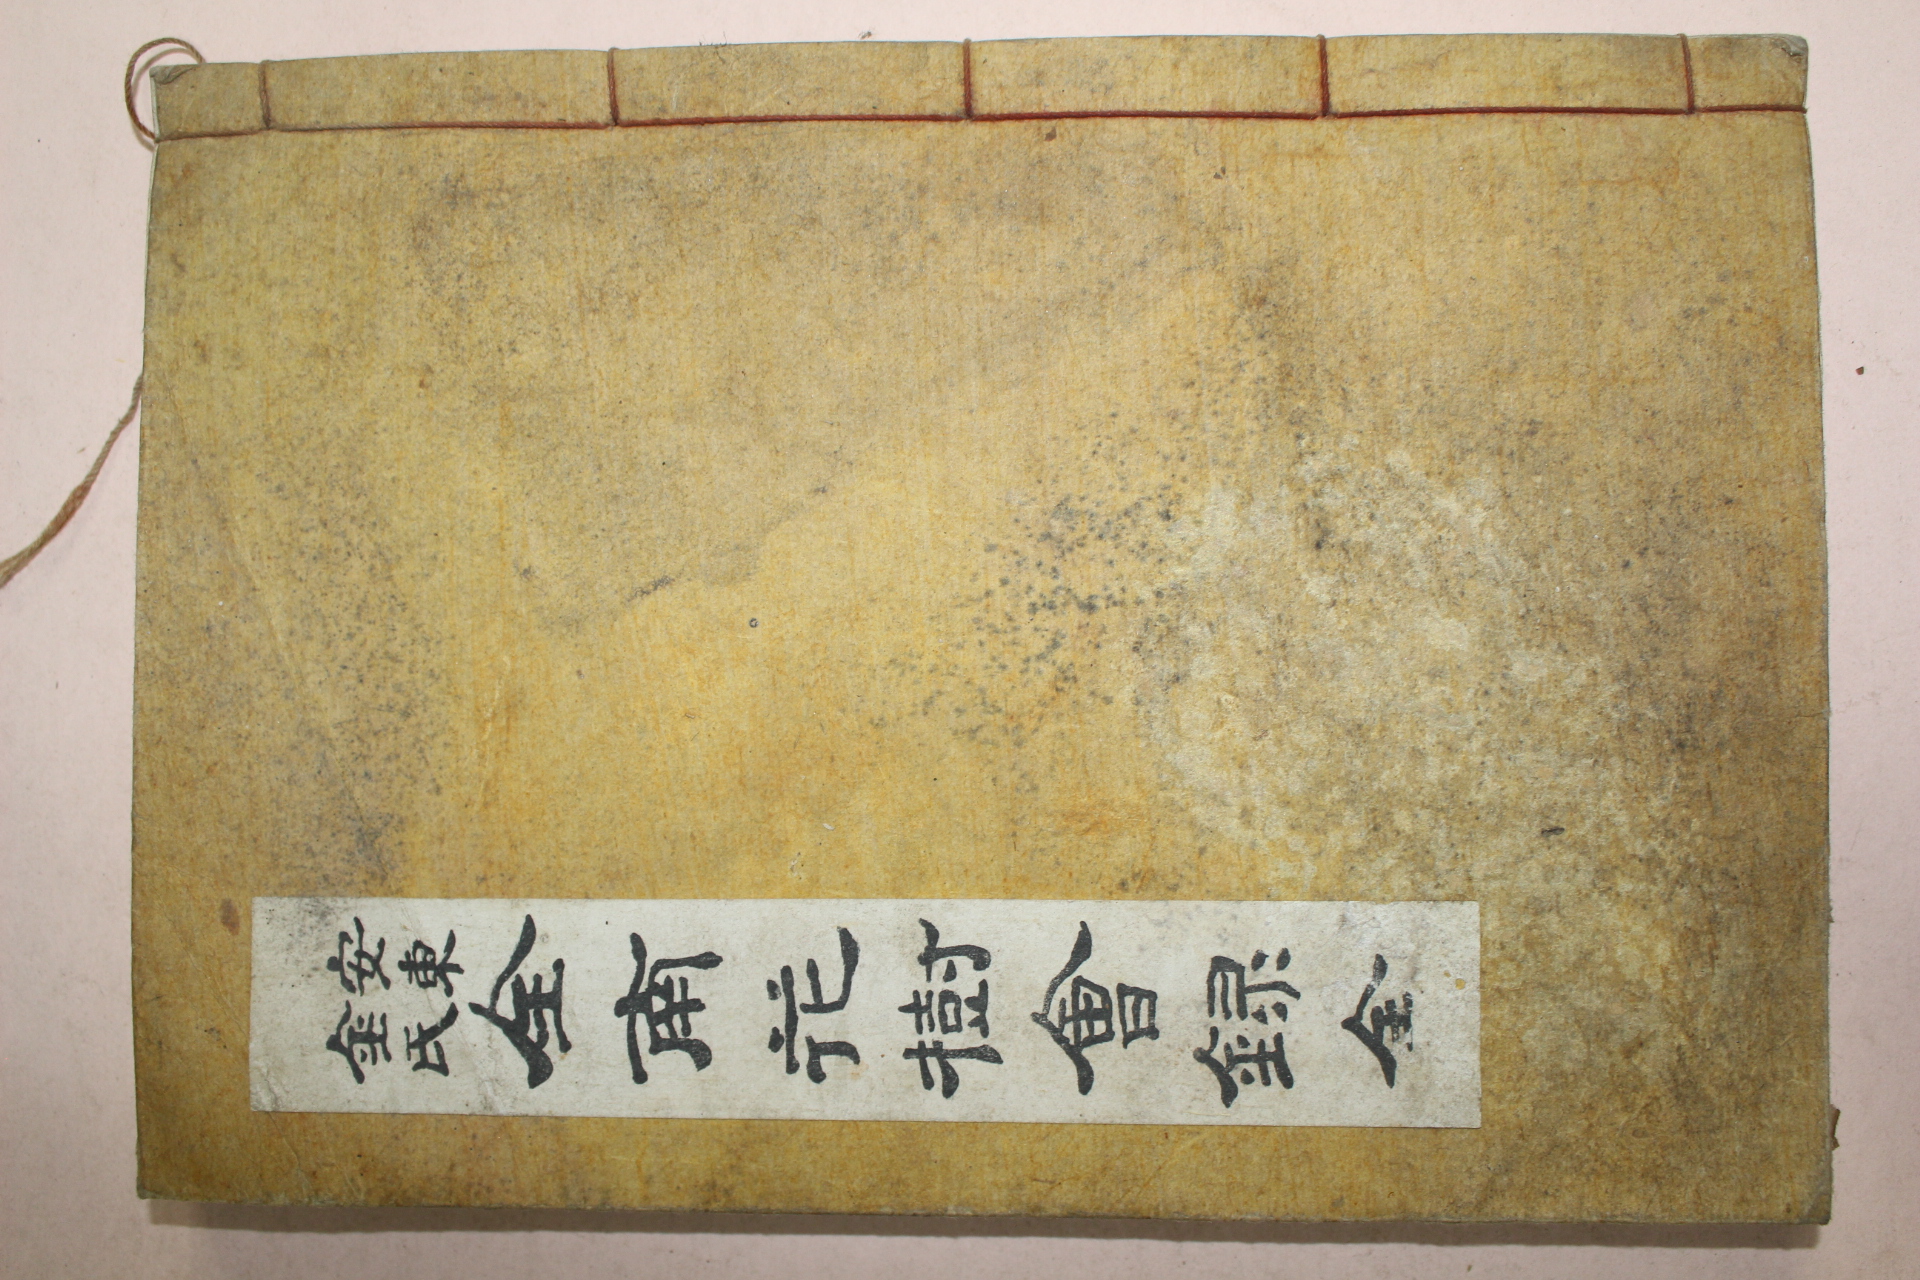 安東
金氏
全南花樹會錄 全